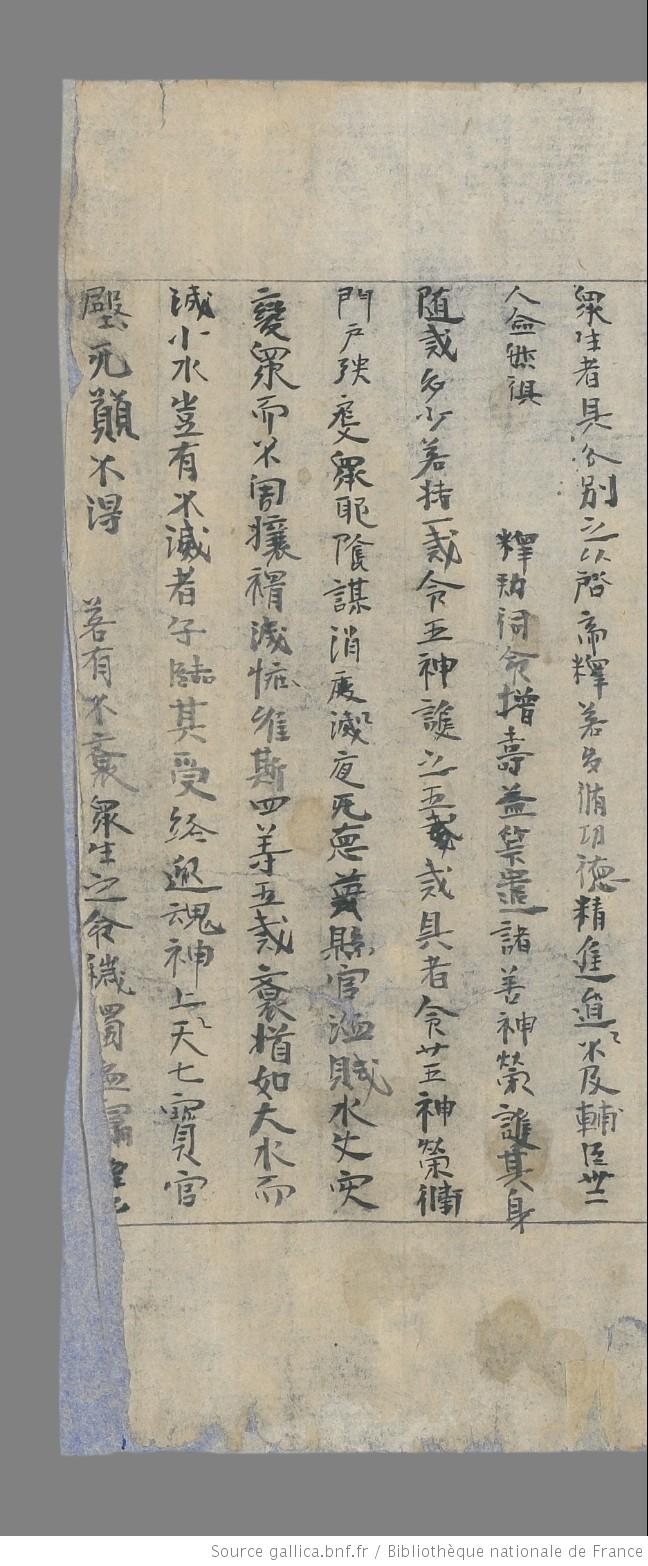 衆生者具分別之以啓帝釋若多脩功德精進道〻不及輔臣卅二
人僉然俱 釋 伺命增壽益筭遣諸善神榮護其身
随戒多少若持一戒令五神護之五戒具者令廿五神榮衛
門戶殃疫衆耶陰謀消 滅夜无惡夢縣官盗賊水火灾
變衆而不 禳禍滅恠唯斯四等五戒 猶如大水而
滅小水豈有不滅者乎臨其受終迎魂神上〻天七寶官
殿无願不得 若有不 衆生之命穢
Source gallica.bnf.fr / Bibliothèque nationale de France